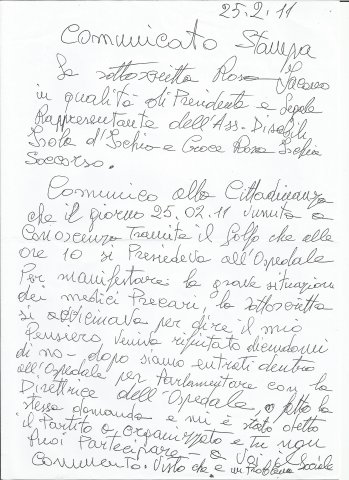 25.2.11
Comunicato Stampa
La sottoscritta Rosa Iacono
in qualità di Presidente e Legale
Rappresentante dell'Ass-Disabili
Isola d'Ischia e Croce Rosa Ischia
Soccorso.
Comunico alla Cittadinanza
che il giorno 25.02.11 Venuta a
Conoscenza Tramite il Golfo che alle
ore 10 si Presiedeva all'Ospedale
Per manifestare la grave situazione
dei medici Precari, la sottoscritta
si avvicinava per dire il mio
Pensiero Veniva rifiutato dicendomi
di no - dopo siamo entrati dentro
all'Ospedale per Parlamentare con la
Direttrice dell'Ospedale, o fatto la
stessa domanda e mi è stato detto
il Partito a organizzato e tu non
Puoi Partecipare a Voi il
Commento. Visto che è un Problema Sociale